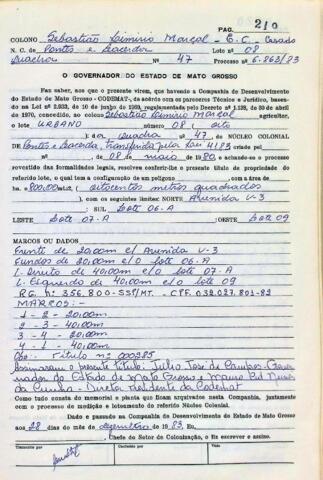 PAG. 210
COLONO Sebastião Limirio Marçal - E.C. Casado
N. C. de Pontes e Lacerda Lote nº 08
Quadra Nº 47 Processo 6.863/83
O GOVERNADOR DO ESTADO DE MATO GROSSO
Faz saber, aos que o presente virem, que havendo a Companhia de Desenvolvimento
do Estado de Mato Grosso - CODEMAT, de acôrdo com os pareceres Técnico e Jurídico, baseados
na Lei nº 2.933, de 10 de junho de 1969, regulamentada pelo Decreto nº 1.138, de 30 de abril
de 1970, concedido, ao colono Sebastião Limirio Marçal agricultor,
o lote URBANO número 08 (oito
) da Quadra nº 47, do NÚCLEO COLONIAL
em Pontes e Lacerda, transferida pela Lei 4183 criado pel
nº , de 08 de maio de 1980, e achando-se o processo
revestido das formalidades legais, resolvem conferir-lhe o presente título de propriedade do
referido lote, o qual tem a configuração de um polígono com a área de
ha. 800,00 m2 (oitocentos metros quadrados
), com os seguintes limites: NORTE Avenida V-3
; SUL Lote 06-A
LESTE Lote 07-A ; OESTE Lote 09
MARCOS OU DADOS
Frente de 20,00m c/ Avenida V-3
Fundos de 20,00m c/o Lote 06-A
L. Direito de 40,00m c/o Lote 07-A
L. Esquerdo de 40,00m c/o Lote 09
RG. nº 356.800-SSP/MT. - CPF. 038.027.801-82
MARCOS: -
1 - 2 - 20,00m
2 - 3 - 40,00m
3 - 4 - 20,00m
4 - 1 - 40,00m
Obs: - Título nº 000285
Assinaram o presente título: Julio José de Campos - Gover
nador do Estado de Mato Grosso e Mauro Cid Nunes
da Cunha - Diretor Presidente da Codemat
Como tudo consta do memorial e planta que ficam arquivados nesta Companhia, juntamente
com o processo de medição e loteamento do referido Núcleo Colonial.
Dado e passado na Companhia de Desenvolvimento do Estado de Mato Grosso
aos 28 dias do mês de dezembro de 1983. Eu,
Chefe do Setor de Colonização, o fiz escrever e assino.